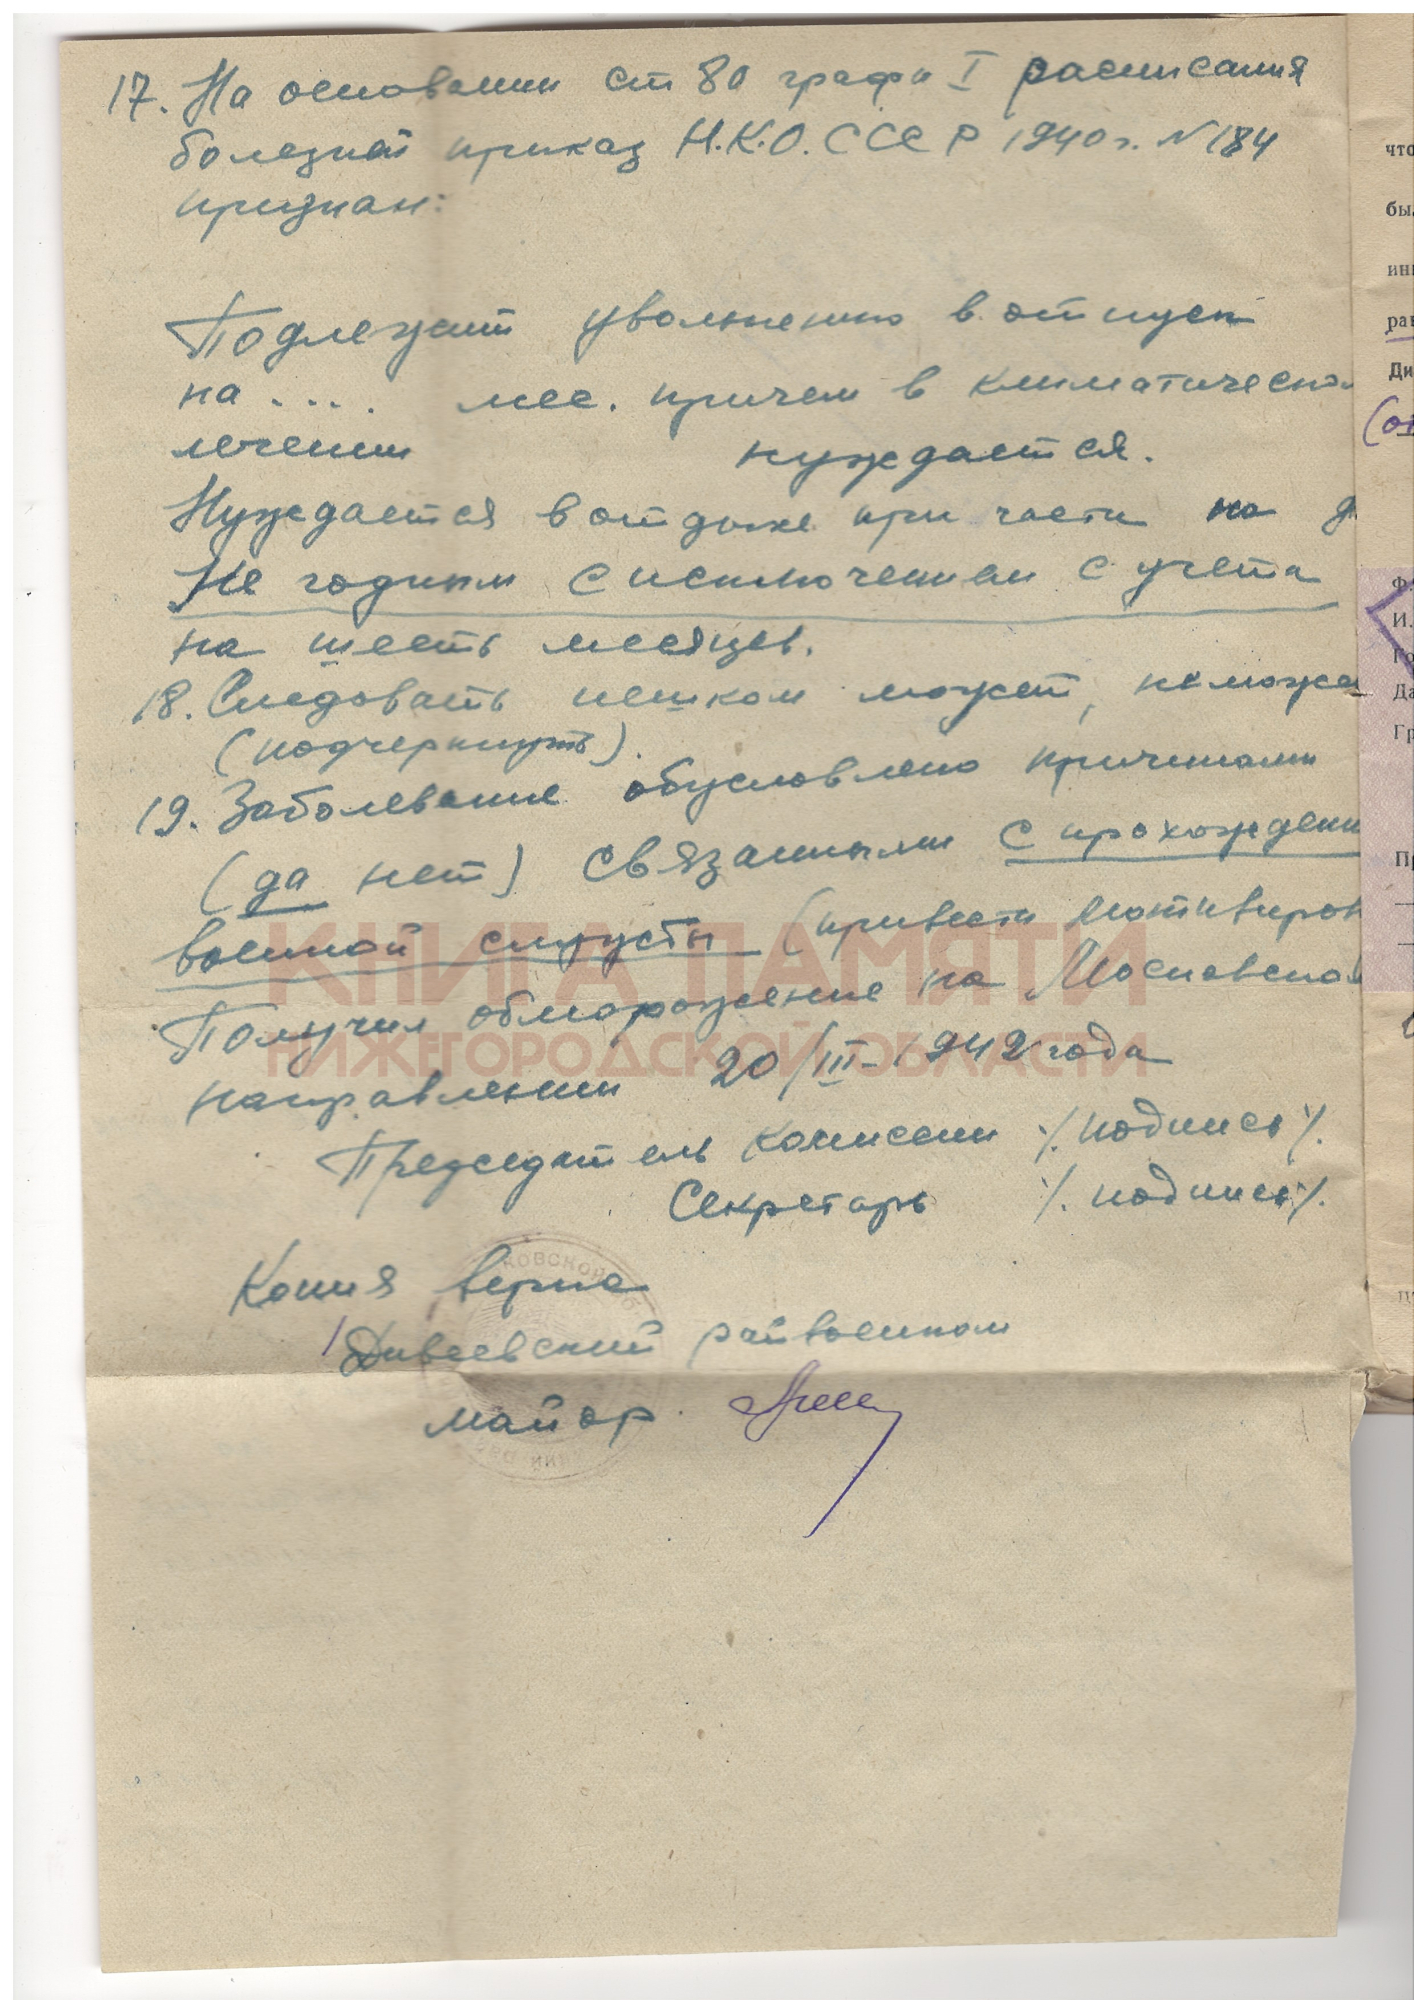 17. На основании ст 80 графы I расписания
болезней приказ Н.К.О. СССР 1940 г. N 184
признан:
Подлежит увольнению в отпуск
на .... мес. причем в климатическом
лечении нуждается.
Нуждается в отдыхе при части на д
Не годным с исключением с учета
на шесть месяцев.
18. Следовать пешком может, не може
(подчеркнуть).
19. Заболевание обусловлено причинами
(да нет) связанными с прохождени
военной службы (привести мотивиров
Получил обморожение на Московском
направлении 20/III-1942 года
Председатель комиссии ·/.подпись·/.
Секретарь ·/.подпись·/.
Копия верна
Дивеевский райвоенком
майор.
КНИГА ПАМЯТИ
НИЖЕГОРОДСКОЙ ОБЛАСТИ
что
бы
ин
ра
Ди
(он
Ф.
И.
Го
Да
Гр
Пр